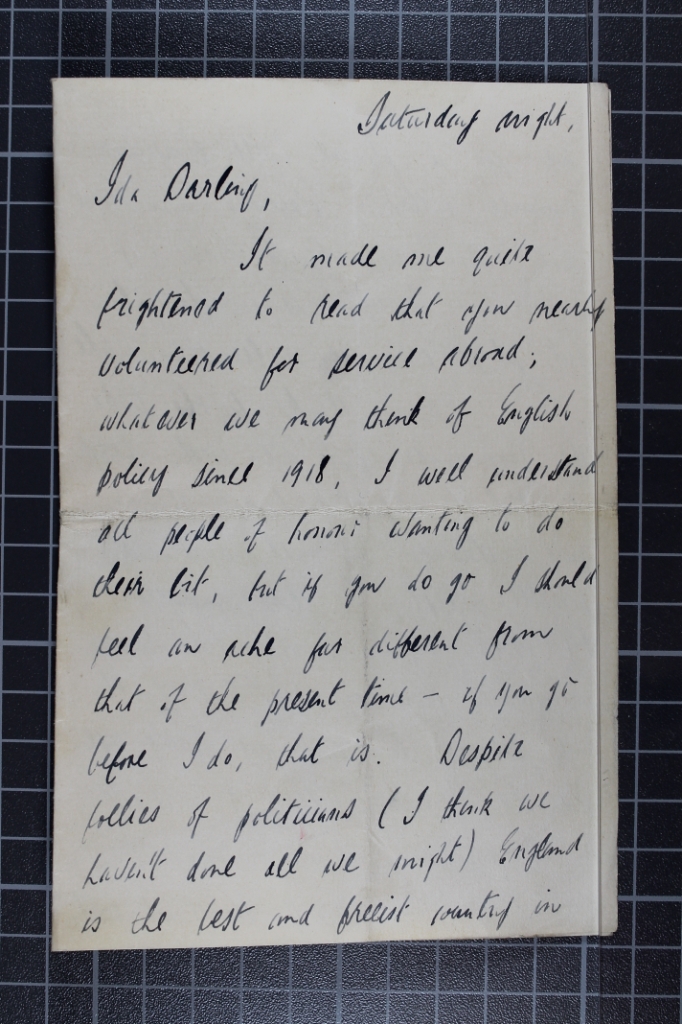 Saturday night,
Ida Darling,
It made me quite
frightened to read that you nearly
volunteered for service abroad;
whatever we may think of English
policy since 1918, I well understand
all people of honour wanting to do
their bit, but if you do go I should
feel an ache far different from
that of the present time – if you go
before I do, that is. Despite
follies of politicians (I think we
haven't done all we might) England
is the best and freeist country in